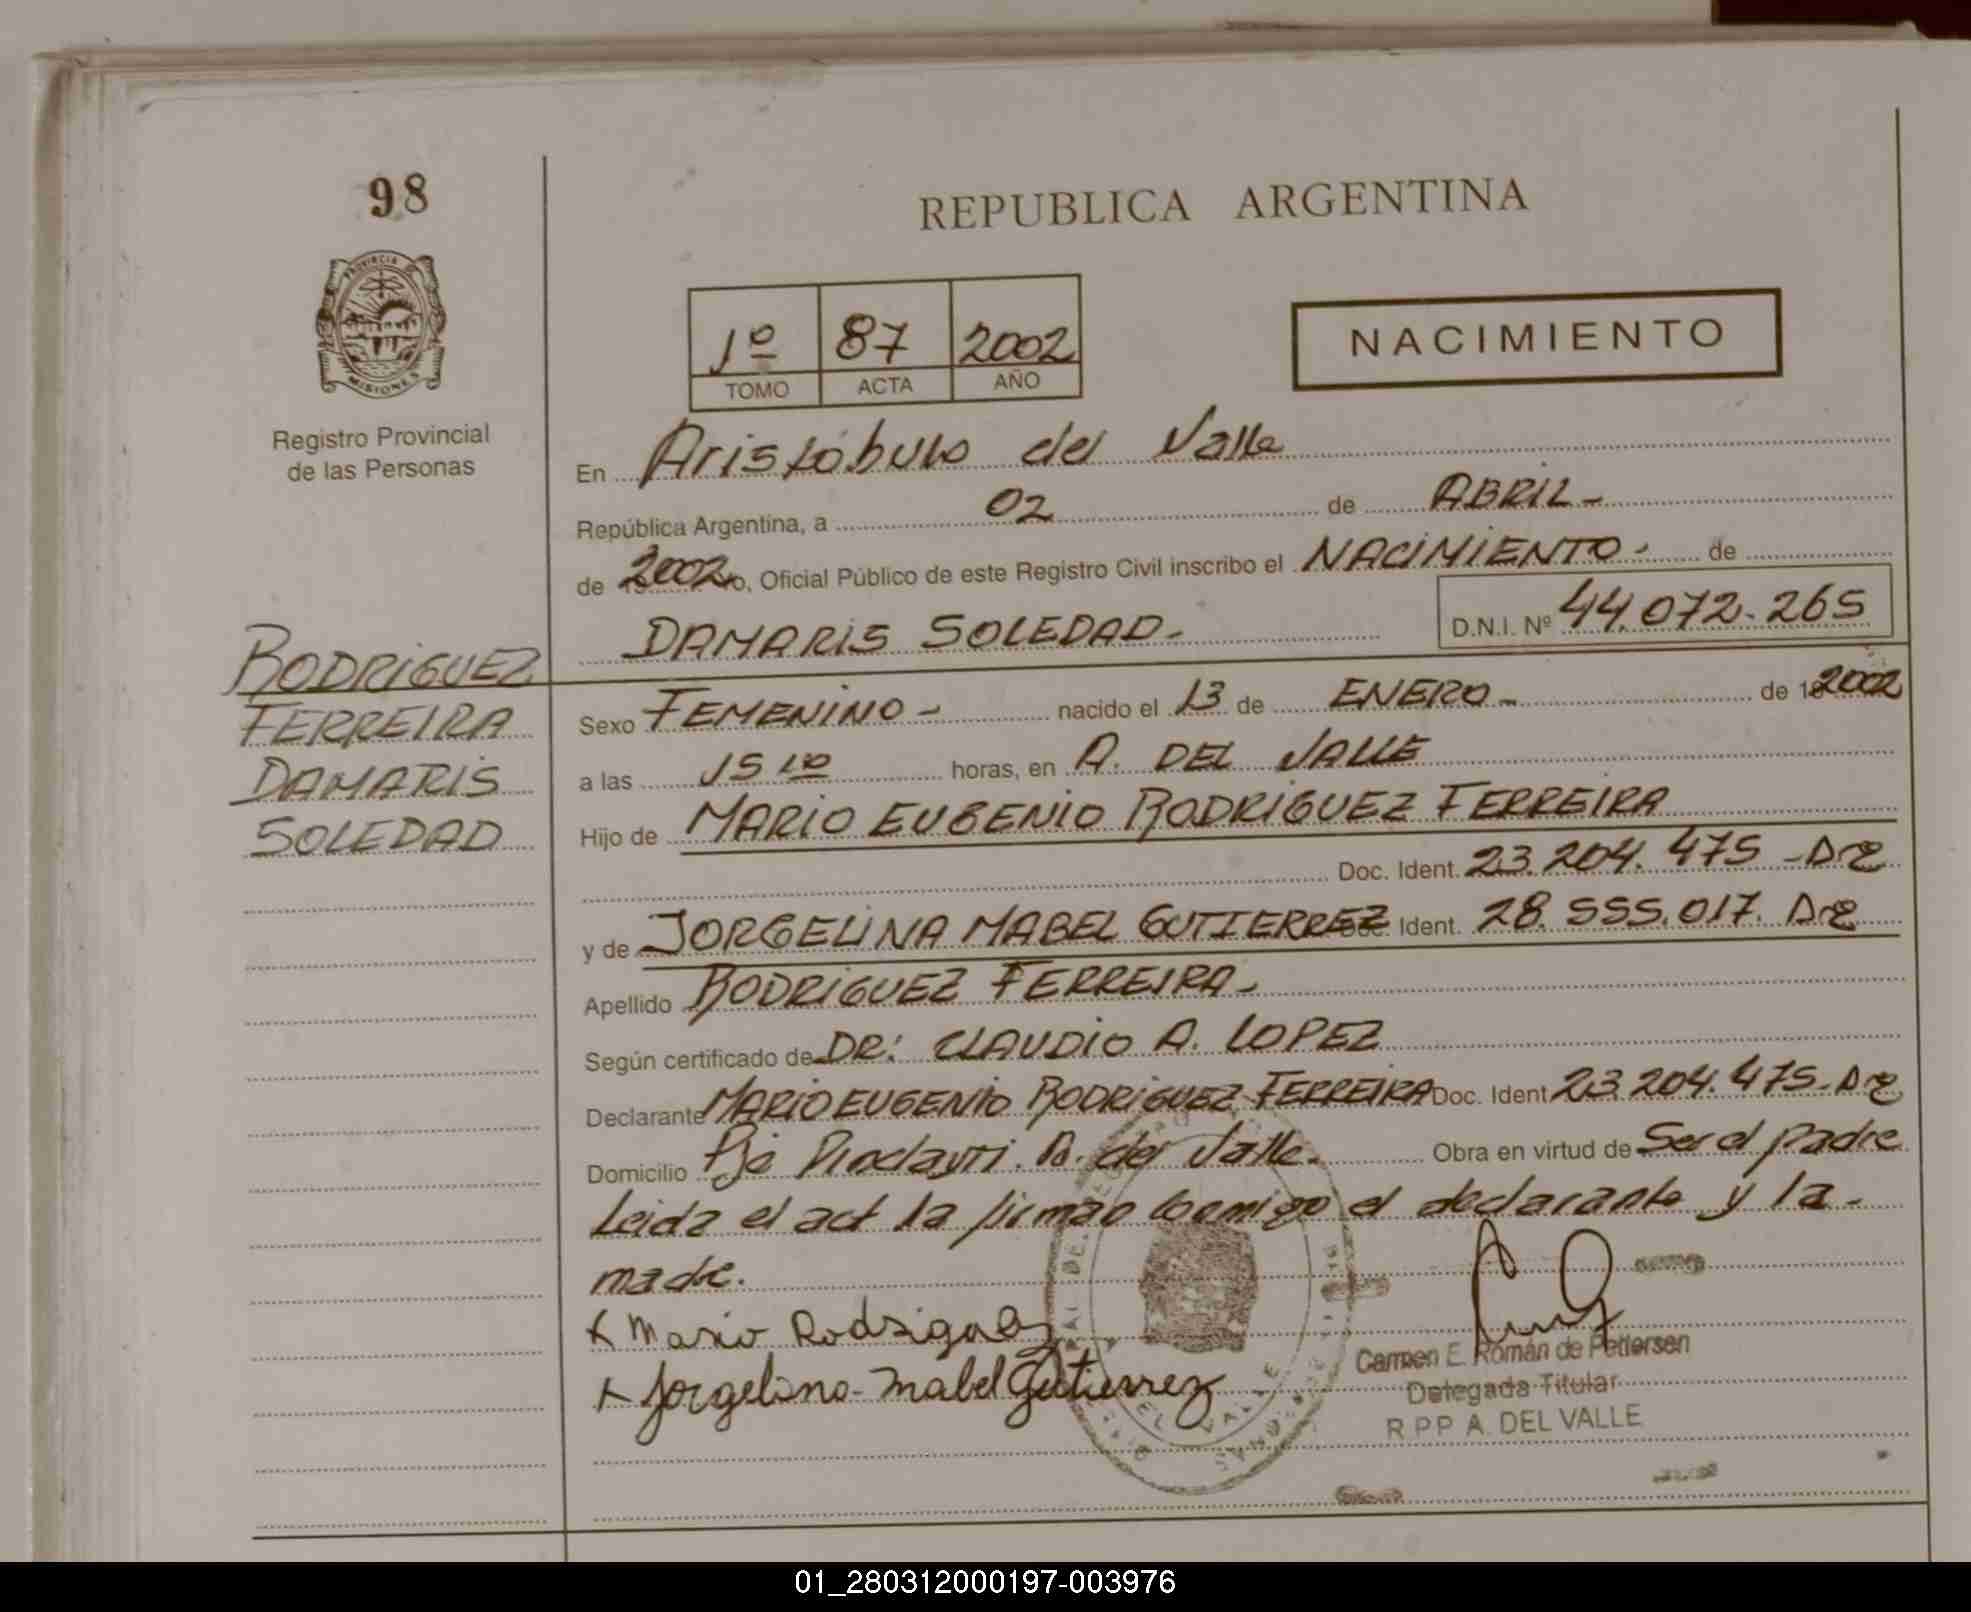 98
REPUBLICA ARGENTINA
PROVINCIA
MISIONES
Registro Provincial
de las Personas
1º 87 2002
TOMO ACTA AÑO
NACIMIENTO
En Aristóbulo del Valle
República Argentina, a 02 de ABRIL-
de 2002 o, Oficial Público de este Registro Civil inscribo el NACIMIENTO- de
DAMARIS SOLEDAD- D.N.I. Nº 44.072.265
RODRIGUEZ
FERREIRA
DAMARIS
SOLEDAD
Sexo FEMENINO- nacido el 13 de ENERO- de 2002
a las 15 10 horas, en A. DEL VALLE
Hijo de MARIO EUGENIO RODRIGUEZ FERREIRA
Doc. Ident. 23.204.475
y de JORGELINA MABEL GUTIERREZ Doc. Ident. 28.555.017.
Apellido RODRIGUEZ FERREIRA-
Según certificado de DR: CLAUDIO A. LOPEZ
Declarante MARIO EUGENIO RODRIGUEZ FERREIRA Doc. Ident. 23.204.475-
Domicilio Pje A. del Valle. Obra en virtud de Ser el padre
Leida el act la firman conmigo el declarante y la-
madre.
x Mario Rodriguez
x Jorgelina Mabel Gutierrez
DEL VALLE
Carmen E. Román de Pettersen
Delegada Titular
R P P A. DEL VALLE
01_280312000197-003976